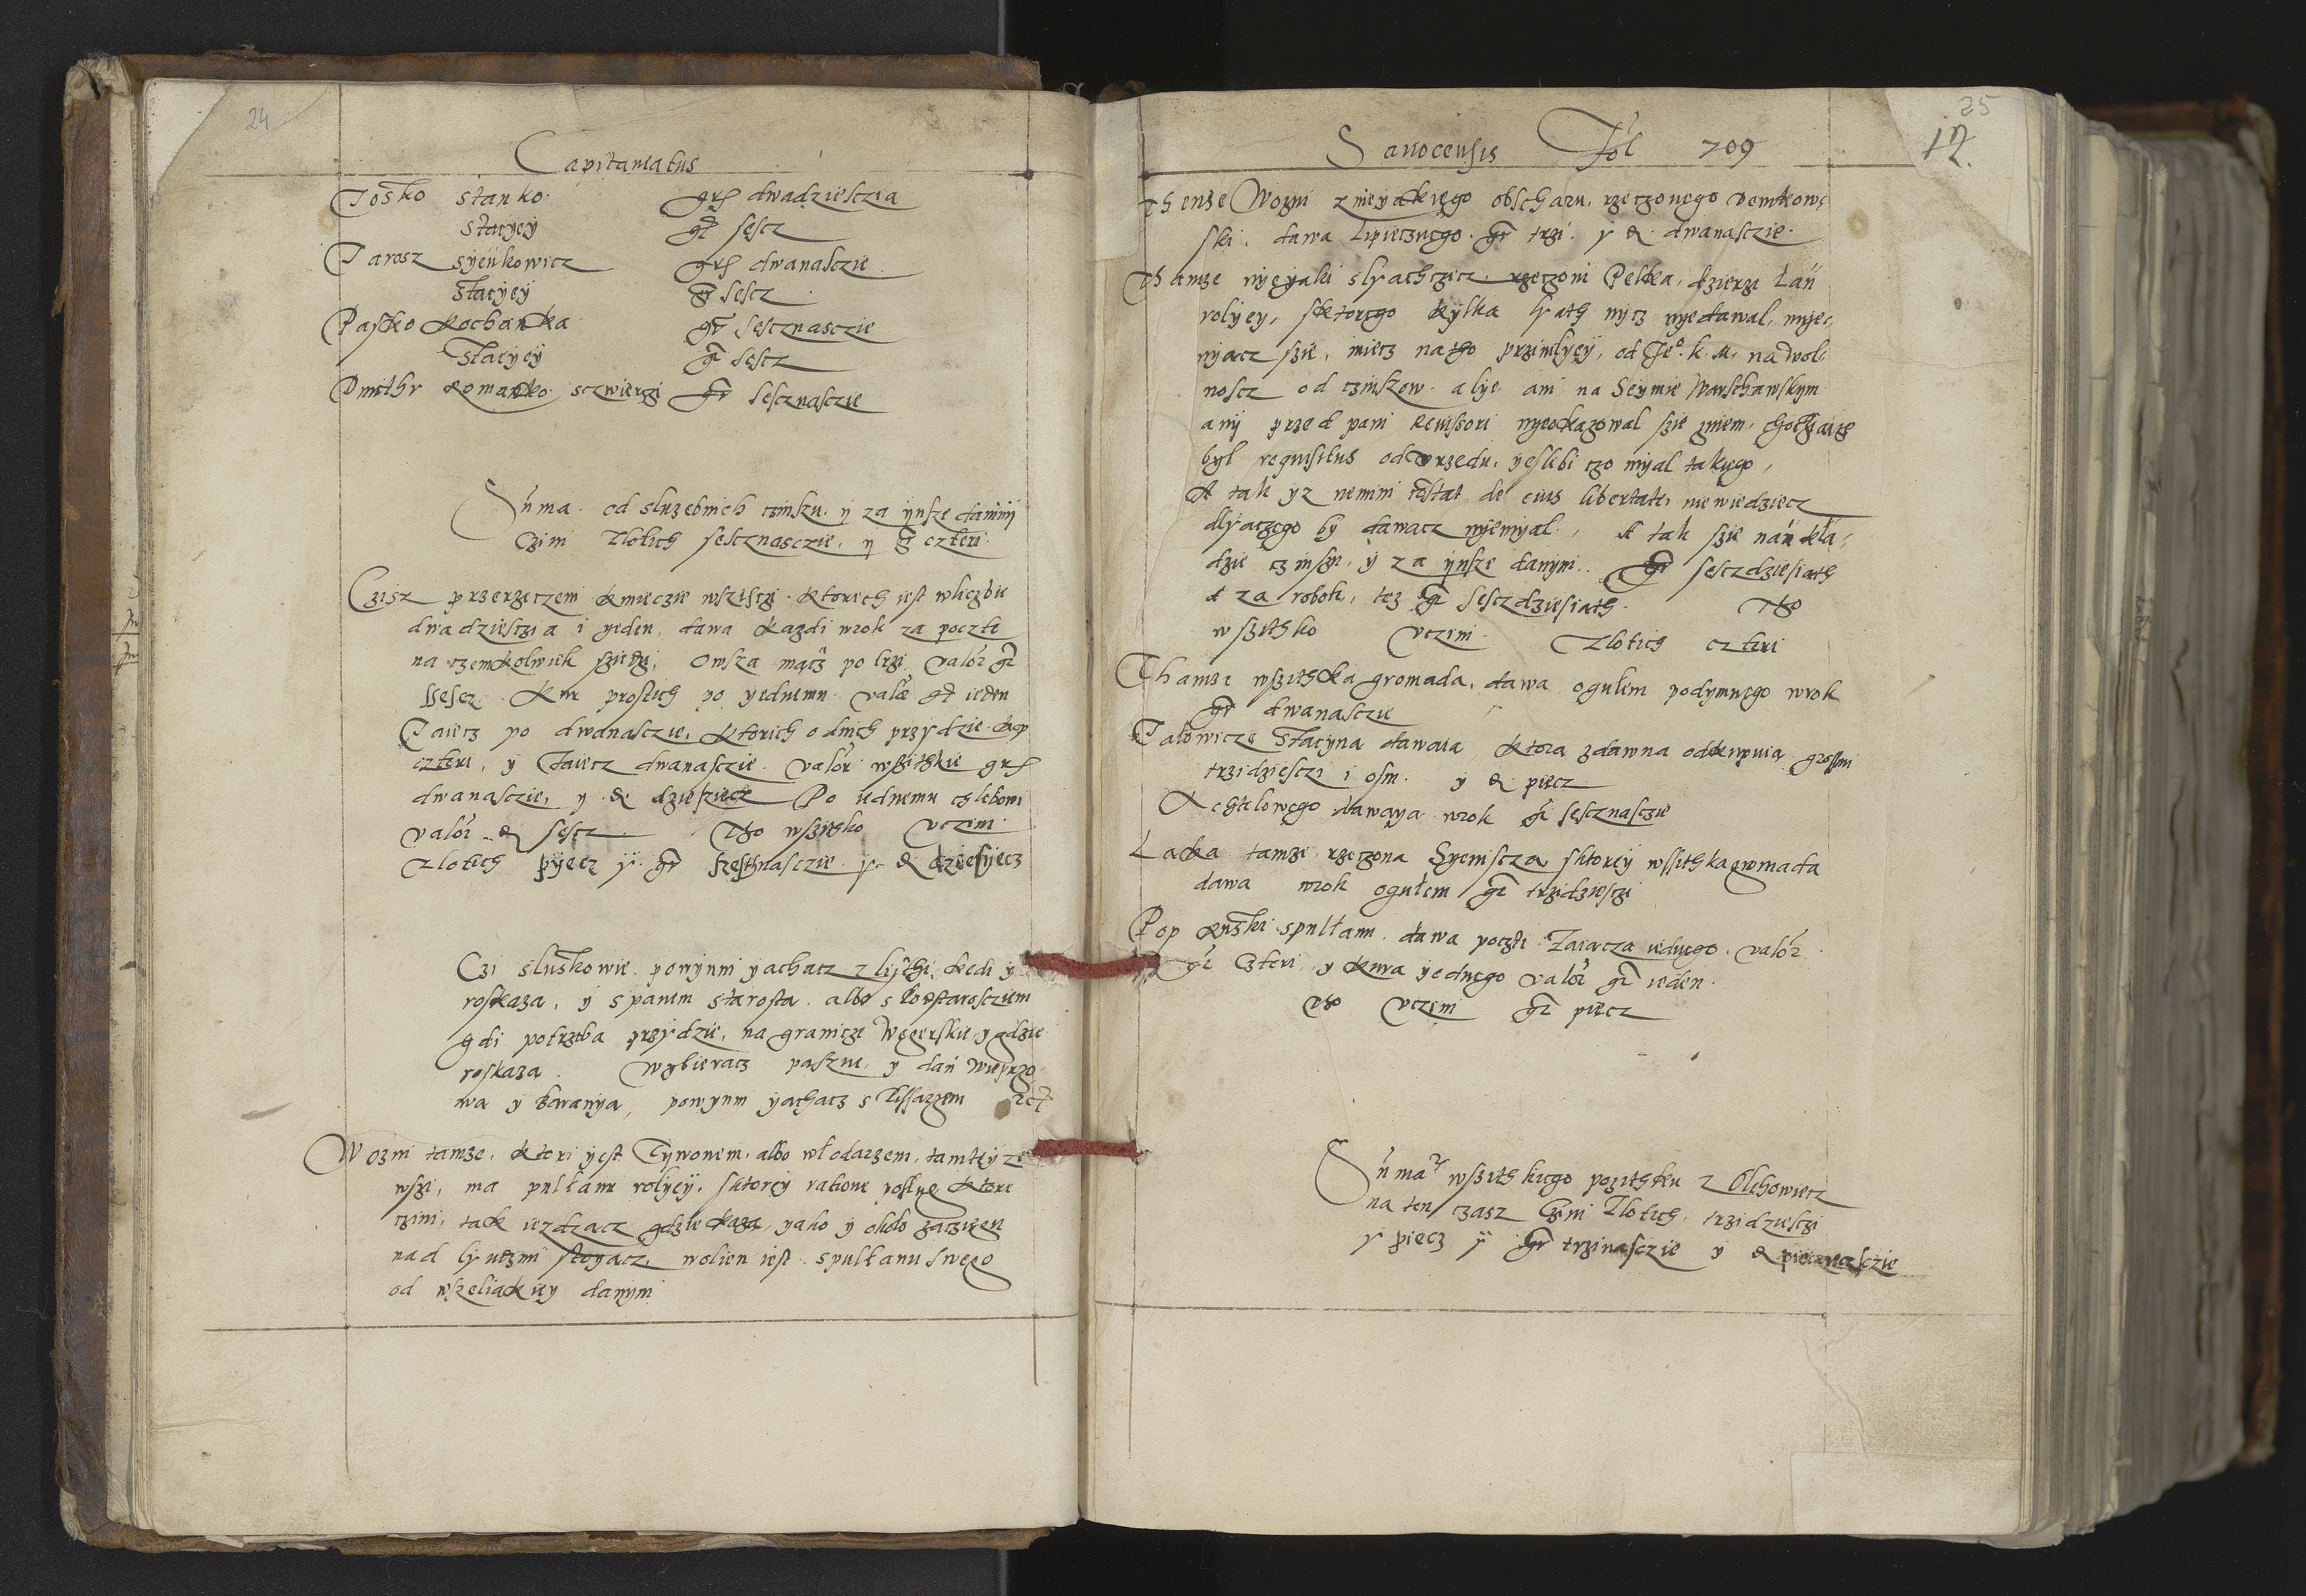 24
Capitaneatus
Josko stanko grs dwadziesczia
stacyey gr sescz
Jarosz syenkowicz grs dwanasczie
stacyey gr sescz
Pasko Kochanka gr sescznasczie
Stacyey gr sescz
Dmithr Romanko sczwierzi gr sescznasczie
Suma od sluzebnich czinszu y za ynsze daniny
Czini Zlotich sescznasczie, y gr czteri
Czisz przerzeczeni kmieczie wszisczi ktorich iest wliczbie
dwadziesczia i yeden, dawa kazdi wrok za poczte
na czemkolwiek szedzi, Owsza macz po trzi valor gr
ssescz Kur prostich po yednemu valor gr ieden
Jaiecz po dwanasczie, ktorich odnich przydzie kop
czteri, y Jaiecz dwanasczie valor wszitskie grs
dwanasczie, y d dziesziecz Po iednemu chlebowi
valor d sescz Tho wszitko vczini
Zlotich pyecz y gr szesthnasczie y d dziesyecz
Czi sluskowie powynni yachacz zlisthi kedi y
roskaza, y spanem starosta albo s Podstarosczem
gdi potrzeba przydzie, na granicze Wegerskie y gdzie
roskaza. Wybieracz paszne, y dan wieprzo
wa y Baranya, powynni yachacz s Pissarzem etc
Wozni tamze, ktori yest Tywonem, albo wlodarzem, tamtey ze
wszi, ma pullanu rolyey, sktorey ratione poslug ktore
czini, tak iezdzacz gdzie kaza, yako y okolo zaczieгu
nad lyudzmi stoyacz, wolien iest spullanu swego
od wszeliakiey daniny
25
12.
Sanocensis Fol 709
Thenze Wozni znieyakiego obscharu, rzeczonego Demkow
ski, dawa Lipiecznego gr trzi y d dwanasczie
Thamze nyeyaki slyachczicz rzeczoni Pelka, dzierzi Lan
rolyey, sktorego kylka lyath nycz nyedawal, myе
nyacz szie, miecz natho przimlyey, od Je° k. M. nawol
noscz od czinszow alye ani na Seymie Warschawskym
any przed pani Revissori nyeokazowal szie zniem, chocziaisz
byl requisitus odvrzedu, yeslibi czo myal takiego,
A tak yz nemini constat de eius libertate, niewiedziecz
dlyaczego by dawacz nyemyal, A tak szie nan kla
dzie czinszu, y za ynsze daniny gr sesczdziesiath
a za robote, tez gr sesczdziesiath. Tho
wszithko vczini Zlotich czteri
Thamze wszithka gromada, dawa ogulem podymnego wrok
gr dwanasczie
Jalowicze Stacyna dawaia, ktora zdawna odkupuia groszmi
trzidziesczi i osm y d piecz
Achtelowego dawaya wrok gr sescznasczie
Laka tamze rzeczona Syeniscza, sktorey wssithka gromada
dawa wrok ogulem gr trzidziesczi
Pop Ruski spullanu dawa poczte Zaiacza iednego valor
gr Czteri y kura yednego valor gr ieden
Tho vczini gr piecz
Suma wszithkiego pozithku z Olchowiecz
na ten czasz Czini Zlotich, trzidziesczi
y piecz y gr trzinasczie y d pietnasczie